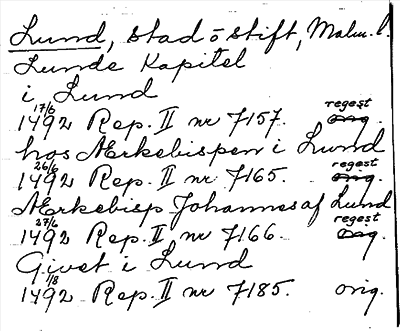 Lund, stad o stift, Malm. l.
Lunde Kapitel
i Lund
17/6 1492 Rep. II nr 7157. regest orig.
hos Ærkebispen i Lund
26/6 1492 Rep. II nr 7165. regest orig.
Ærkebisp Johannes af Lund
27/6 1492 Rep. II nr 7166. regest orig.
Givet i Lund
1/8 1492 Rep. II nr 7185. orig.